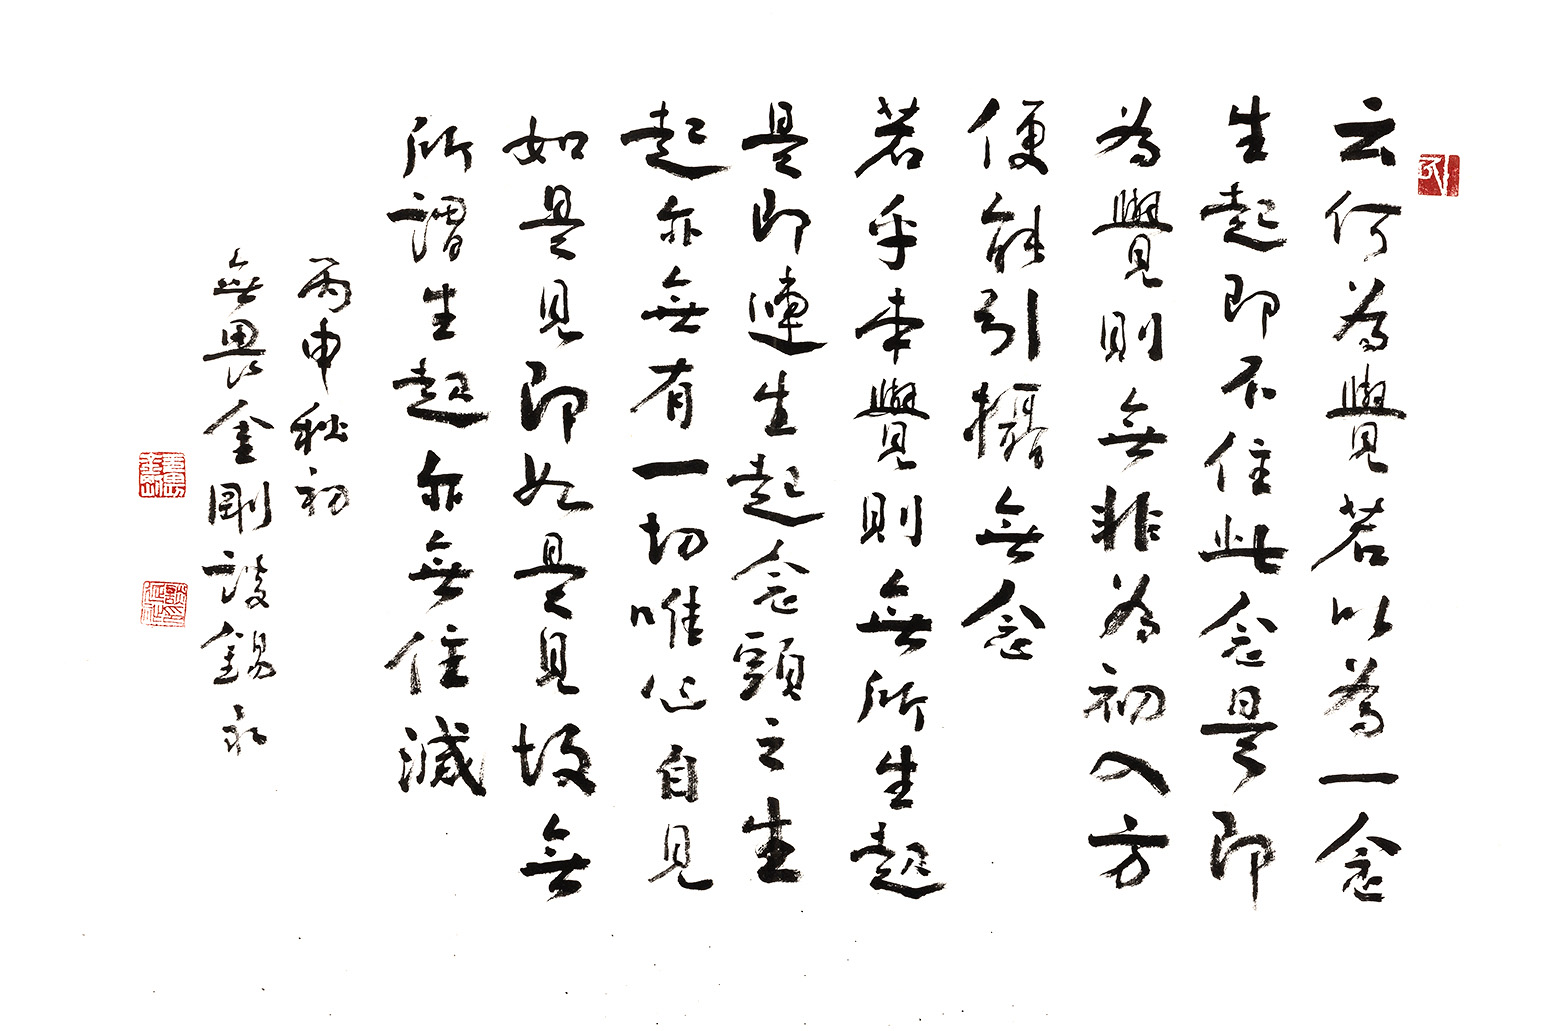 云何為覺若以為一念
生起即不住此念是即
為覺則無非為初入方
便能引攝無念
若乎本覺則無所生起
是即連生起念頭之生
起亦無有一切唯心自見
如是見即如是見故無
所謂生起亦無住滅
丙申秋初
無畏金剛談錫永